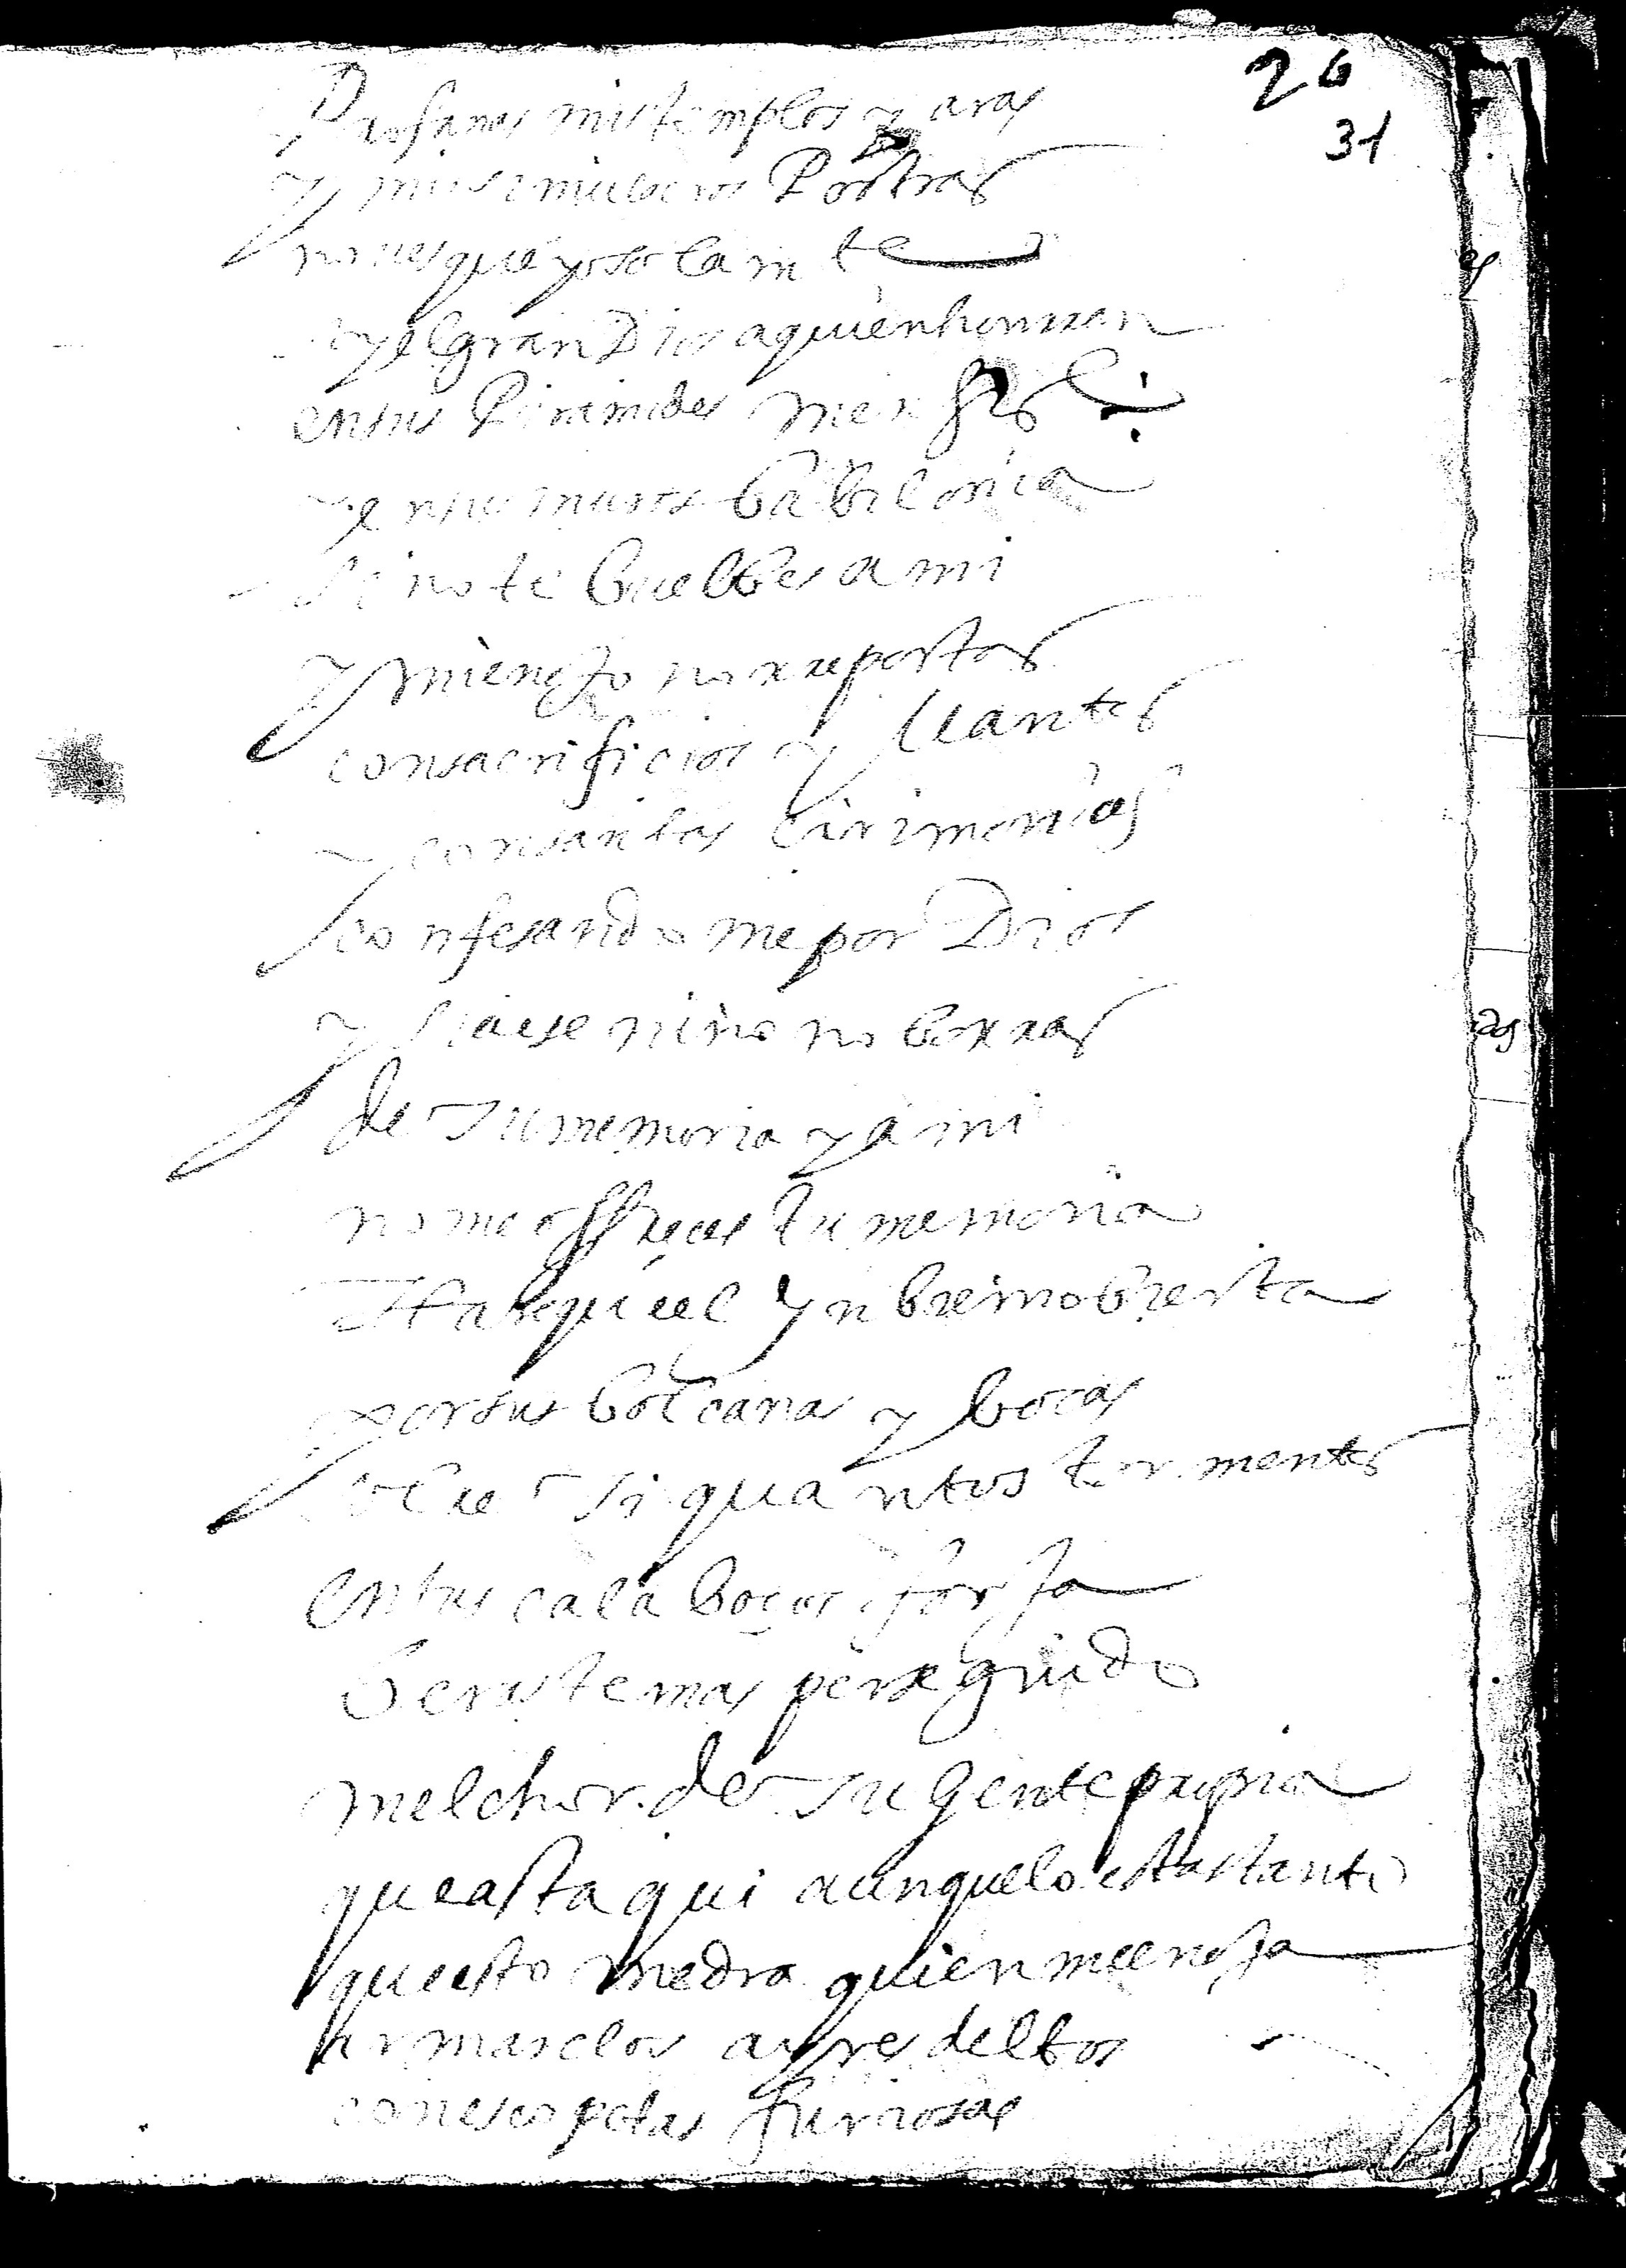 26
31
Profanas mis templos y aras
y mis simulacros Postras
no ves que yo solamte
soy el gran Dios a quien honrran
en sus Piramides menfis
y en sus muros babilonia
si no te buelbes a mi
y mi enojo no rreportas
con sacrificios y llantos
y con santas cirimonias
confesandome por Dios
y si a ese niño no borras
de tu memoria y a mi
no me ofreces tu memoria
Hare que el ynbierno bierta
por sus bolcanas y bocas
sobre ti quantos tormentos
en sus calaboços forja
beraste mas perseguido
melchor de tu gente propia
que asta qui aunque lo estas tanto
que esto medra quien me enoja
armarelos ayres de
con escopetas furiosas
es
das